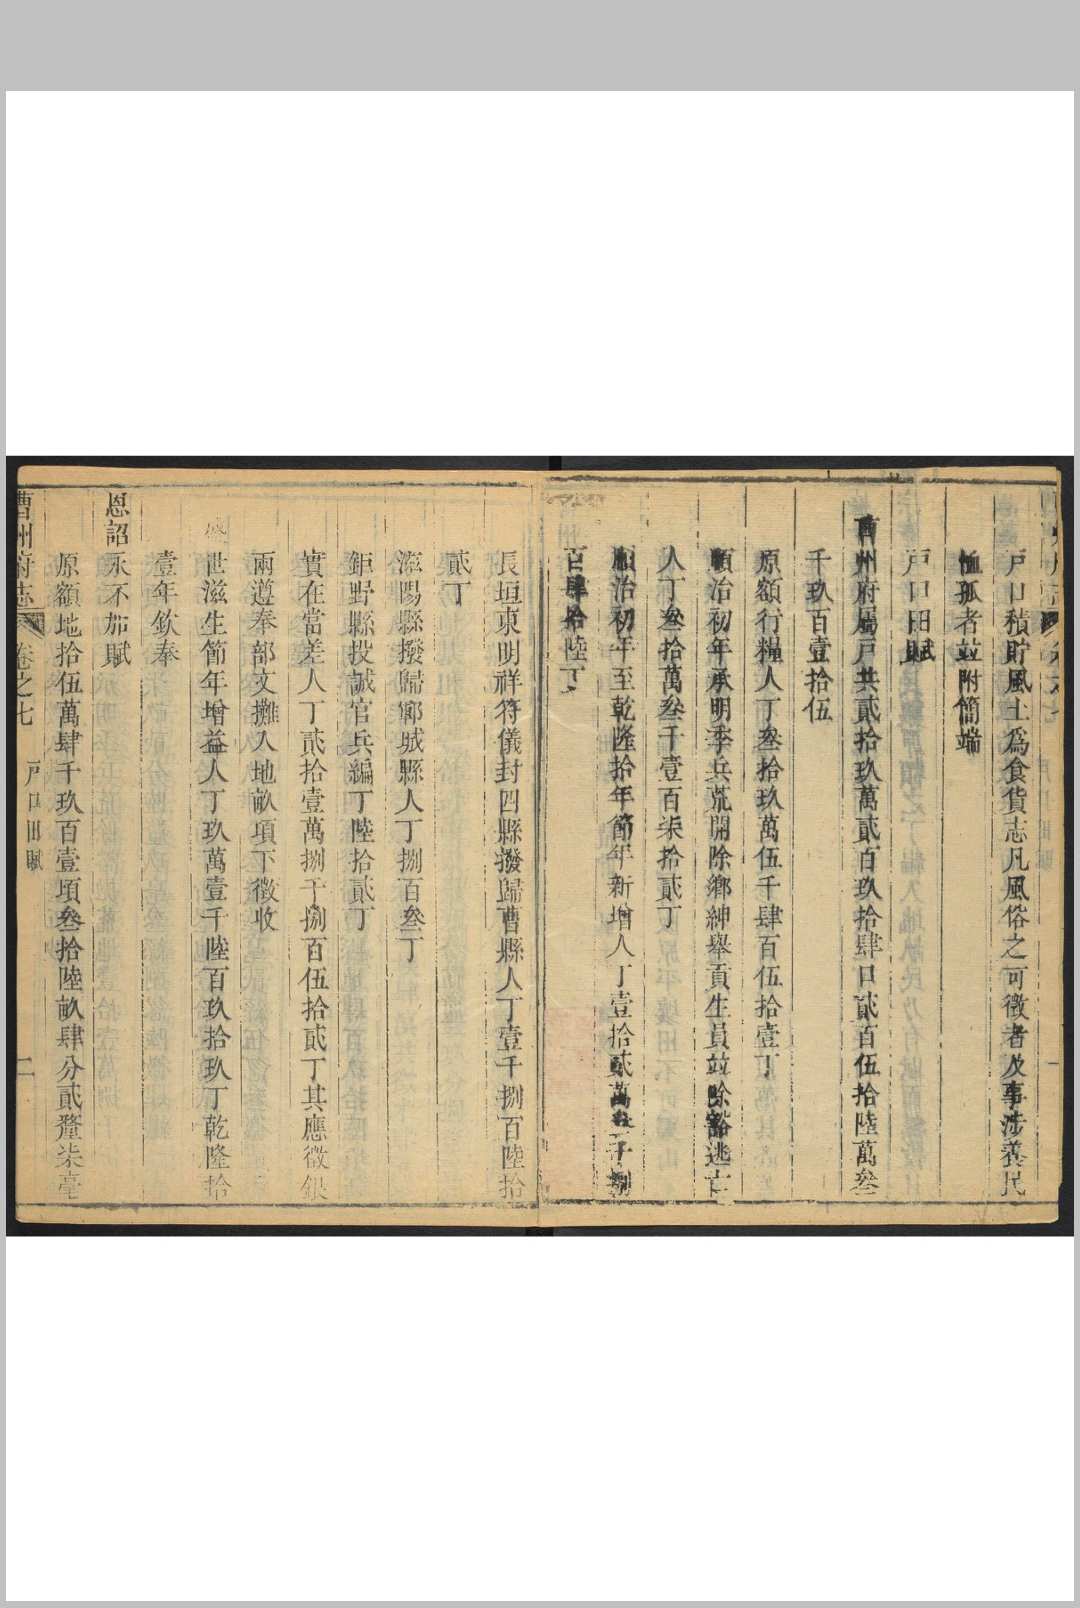 戸口積貯風土爲食貨志凡風俗之可徴者及事涉養民
恤孤者並附簡端
戸口田賦
曹州府屬戸共貳拾玖萬貳百玖拾肆口貳百伍拾陸萬叁
千玖百壹拾伍
原額行糧人丁叁拾玖萬伍千肆百伍拾壹丁
順治初年承明季兵荒開除鄉紳舉貢生員並除豁逃亡
人丁叁拾萬叁千壹百柒拾貳丁
順治初年至乾隆拾年節年新增人丁壹拾貳萬 千捌
百肆拾陸丁
長垣東明祥符儀封四縣撥歸曹縣人丁壹千捌百陸拾
貳丁
滋陽縣撥歸鄆城縣人丁捌百叁丁
鉅野縣投誠官兵編丁陸拾貳丁
實在當差人丁貳拾壹萬捌千捌百伍拾貳丁其應徴銀
兩遵奉部文攤入地畝項下徴收
世滋生節年增益人丁玖萬壹千陸百玖拾玖丁乾隆拾
壹年欽奉
恩詔永不加賦
原額地拾伍萬肆千玖百壹頃叁拾陸畝肆分貳釐柒毫
曹州府志 卷之七 戸口田賦 二